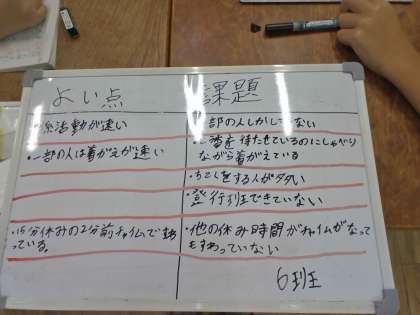 よい点
課題
・係活動が速い
・一部の人は着がえが速い
・15分休みの2分前チャイムですわ
っている。
一部の人しかしてない
待たせているのにしゃべり
ながら着がえている
をする人が多い
登行班できていない
・他の休み時間がチャイムがなって
もすわっていない
6班